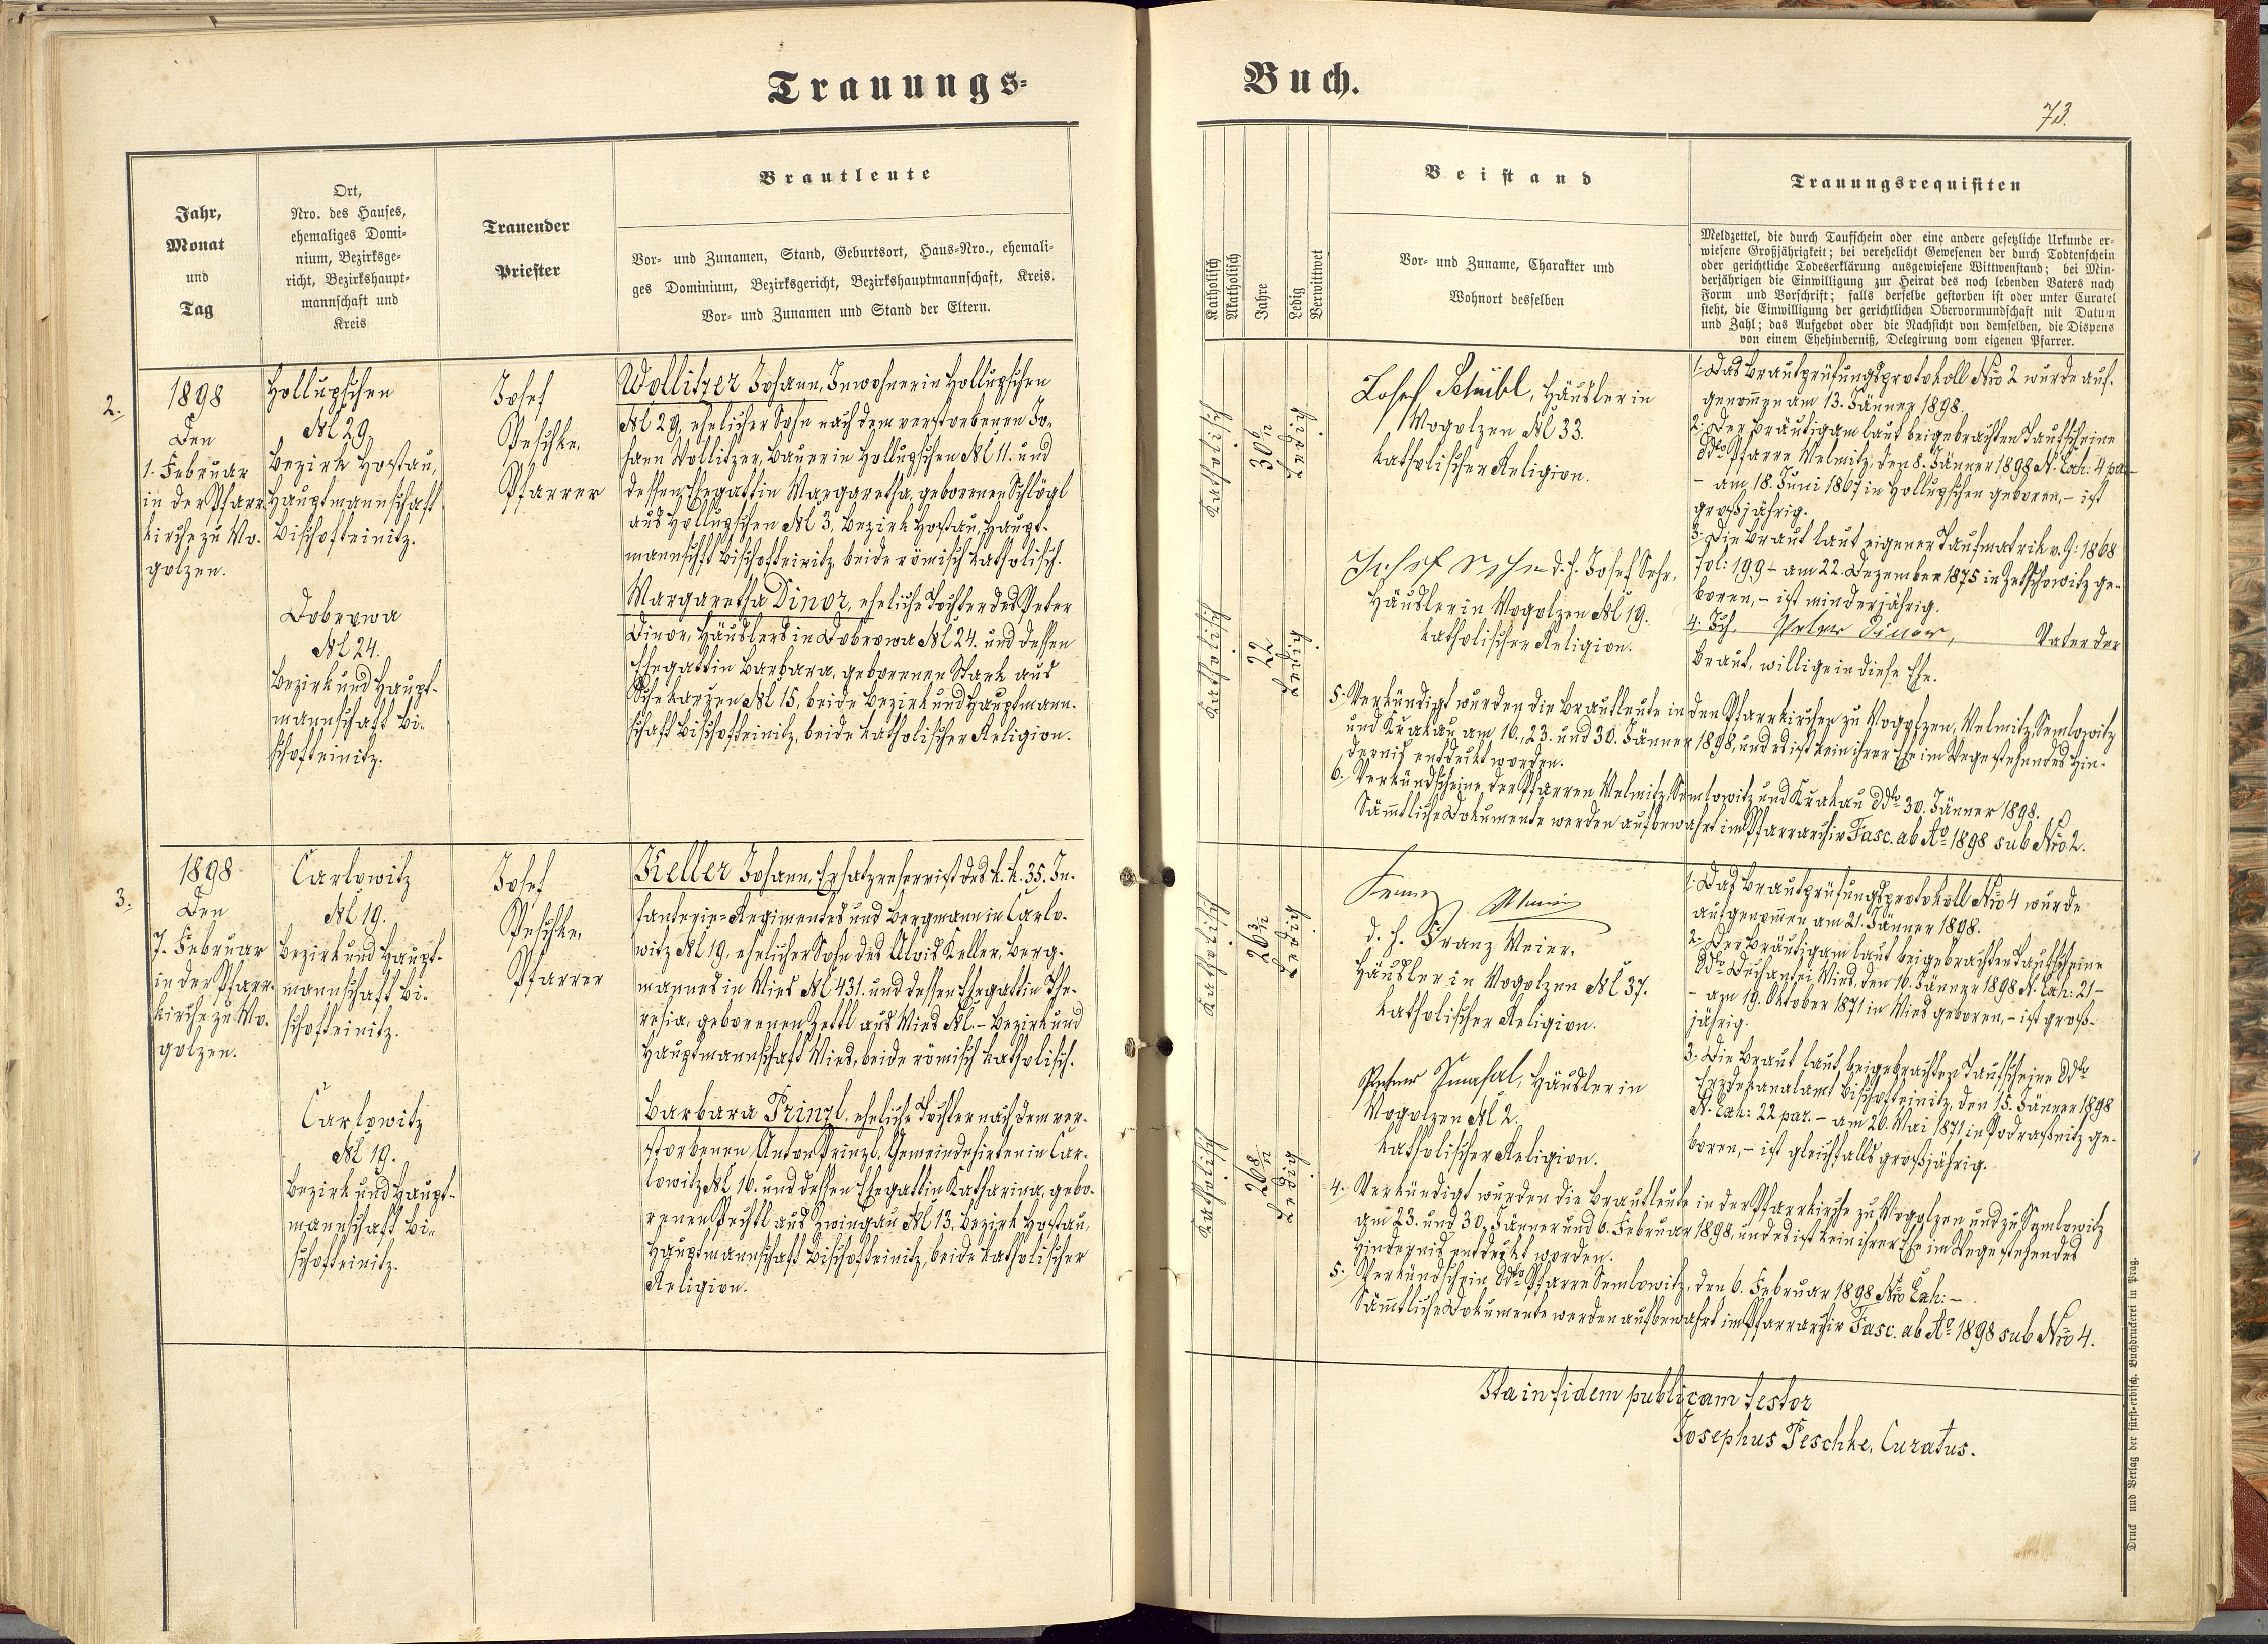 Trauungs=
Buch.
73.
Jahr,
Monat
und
Tag
Ort,
Nro. des Hauses,
ehemaliges Domi-
nium, Bezirksge-
richt, Bezirkshaupt-
mannschaft und
Kreis
Trauender
Priester
Brautleute
Vor- und Zunamen, Stand, Geburtsort, Haus-Nro., ehemali-
ges Dominium, Bezirksgericht, Bezirkshauptmannschaft, Kreis.
Vor- und Zunamen und Stand der Eltern.
Katholisch
Akatholisch
Jahre
Ledig
Verwittwet
Beistand
Vor- und Zuname, Charakter und
Wohnort desselben
Trauungsrequisiten
Meldzettel, die durch Taufschein oder eine andere gesetzliche Urkunde er-
wiesene Großjährigkeit; bei verehelicht Gewesenen der durch Todtenschein
oder gerichtliche Todeserklärung ausgewiesene Wittwenstand; bei Min-
derjährigen die Einwilligung zur Heirat des noch lebenden Vaters nach
Form und Vorschrift; falls derselbe gestorben ist oder unter Curatel
steht, die Einwilligung der gerichtlichen Obervormundschaft mit Datum
und Zahl; das Aufgebot oder die Nachsicht von demselben, die Dispens
von einem Ehehinderniß, Delegirung vom eigenen Pfarrer.
2.
1898
Den
1. Februar
in der Pfarr-
kirche zu Mo-
golzen.
Hollupschen
№ 29,
Bezirk Hostau,
Hauptmannschaft
Bischofteinitz.
Dobrowa
№ 24.
Bezirk und Haupt-
mannschaft Bi-
schofteinitz.
Josef
Peschke,
Pfarrer
Wollitzer Johann, Inwohner in Hollupschen
№ 29, ehelicher Sohn nach dem verstorbenen Jo-
hann Wollitzer, Bauer in Hollupschen № 11. und
dessen Ehegattin Margaretha, geborenen Schlögl
aus Hollupschen № 3, Bezirk Hostau, Haupt-
mannschft Bischofteinitz, beide römisch katholisch.
Margaretha Dinor, eheliche Tochter des Peter
Dinor, Häuslers in Dobrowa № 24. und dessen
Ehegattin Barbara, geborenen Stark aus
№ 15, beide Bezirk und Hauptmann-
schaft Bischofteinitz, beide katholischer Religion.
Katholisch
30 6/12
Ledig
Katholisch
22
Ledig
Josef Schübl, Häusler in
Mogolzen № 33.
katholischer Religion.
d. h. Josef Sehr,
Häusler in Mogolzen № 19.
katholischer Religion.
1. Das Brautprüfungsprotokoll Nro 2 wurde auf-
genom̄en am 13. Jänner 1898.
2. Der Bräutigam laut beigebrachten Taufscheine
ddto Pfarre Melmitz, den 8. Jänner 1898 N. Exh: 4 par
- am 18. Juni 1867 in Hollupschen geboren, - ist
großjährig.
3. Die Braut laut eigener Taufmatrik v. J: 1868
fol: 199 - am 22. Dezember 1875 in Zetschowitz ge-
boren, - ist minderjährig.
4. Ich, Peter Dinor, Vater der
Braut, willige in diese Ehe.
5. Verkündigt wurden die Brautleute in den Pfarrkirchen zu Mogolzen, Melmitz, Semlowitz
und Krakau am 16., 23. und 30. Jänner 1898, und es ist kein ihrer Ehe im Wege stehendes Hin-
derniß entdeckt worden.
6. Verkündscheine der Pfarren Melmitz, Semlowitz und Krakau ddto 30. Jänner 1898.
Säm̄tliche Dokumente werden aufbewahrt im Pfarrarchiv Fasc. ab Ao 1898 sub Nro 2.
3.
1898
Den
7. Februar
in der Pfarr-
kirche zu Mo-
golzen.
Carlowitz
№ 19.
Bezirk und Haupt-
mannschaft Bi-
schofteinitz.
Carlowitz
№ 19.
Bezirk und Haupt-
mannschaft Bi-
schofteinitz.
Josef
Peschke,
Pfarrer
Keller Johann, Ersatzreservist des k. k. 35. In-
fanterie=Regimentes und Bergmann in Carlo-
witz № 19, ehelicher Sohn des Alois Keller, Berg-
mannes in Mies № 431. und dessen Ehegattin The-
resia, geborenen Zettl aus Mies № - Bezirk und
Hauptmannschaft Mies, beide römisch katholisch.
Barbara Prinzl, eheliche Tochter nach dem ver-
storbenen Anton Prinzl, Gemeindehirten in Car-
lowitz № 16. und dessen Ehegattin Katharina, gebo-
renen Pechtl aus Zwingau № 13, Bezirk Hostau,
Hauptmannschaft Bischofteinitz, beide katholischer
Religion.
Katholisch
26 3/12
Ledig
Katholisch
26 8/12
Ledig
d. h. Franz Meier,
Häusler in Mogolzen № 37.
katholischer Religion.
Häusler in
Mogolzen № 2.
katholischer Religion.
1. Das Brautprüfungsprotokoll Nro 4 wurde
aufgenom̄en am 21. Jänner 1898.
2. Der Bräutigam laut beigebrachten Taufscheine
ddto Dechantei Mies, den 16. Jänner 1898 N. Exh: 21 -
- am 19. Oktober 1871 in Mies geboren, - ist groß-
jährig.
3. Die Braut laut beigebrachten Taufscheine ddto
Erzdekanalamt Bischofteinitz, den 15. Jänner 1898
N. Exh: 22 par. - am 26. Mai 1871 in Podraßnitz ge-
boren, - ist gleichfalls großjährig.
4. Verkündigt wurden die Brautleute in der Pfarrkirche zu Mogolzen und zu Semlowitz
am 23. und 30. Jänner und 6. Februar 1898, und es ist kein ihrer Ehe im Wege stehendes
Hinderniß entdeckt worden.
5. Verkündschein ddto Pfarre Semlowitz, den 6. Februar 1898 Nro Exh: -
Säm̄tliche Dokumente werden aufbewahrt im Pfarrarchiv Fasc. ab Ao 1898 sub Nro 4.
Ita in fidem publicam testor
Josephus Peschke, Curatus.
Druck und Verlag der fürst-erzbisch. Buchdruckerei in Prag.